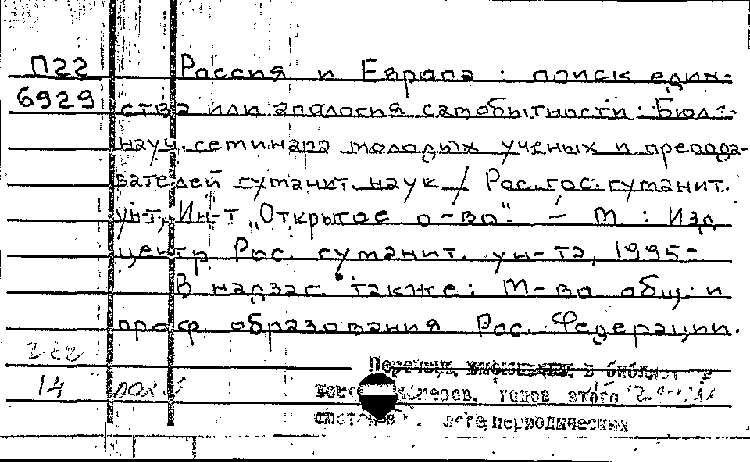 П22 Россия и Европа : поиск един-
6929 ства или апология самобытности : Бюл.
науч. семинара молодых ученых и препода-
вателей гуманит. наук / Рос. гос. гуманит.
ун-т, Ин-т "Открытое о-во". – М : Изд
центр Рос. гуманит. ун-та, 1995-
В надзаг. также: М-во общ. и
проф образования Рос. Федерации.
14
Перечень в библиот
томов, этого
периодических